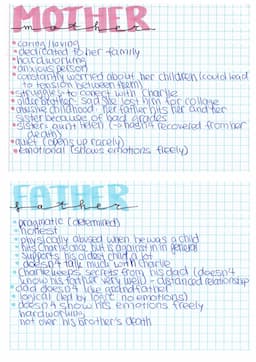 MOTHER
mother
• caring/loving
• dedicated to her family
• hardworking
• anxious person
• constantly worried about her children (could lead
to tension between them)
• struggles to conect with Charlie
• older brother - sad she lost him for collage
• abusive childhood - her father hits her and her
sister because of bad grades
• sister - aunt Helen (→ hasn't recovered from her
death)
• quiet (opens up rarely)
• emotional (shows emotions freely)
FATHER
father
• pragmatic (determined)
• honest
• physically abused when he was a child
• hits Charlie once, but is against it in general
• supports his oldest child a lot
• doesn't talk much with Charlie
• Charlie keeps secrets from his dad (doesn't
know his father very well) - distanced relationship
• dad doesn't like grandfather
• logical (led by logic no emotions)
• doesn't show his emotions freely
hardworking
not over his brother's death